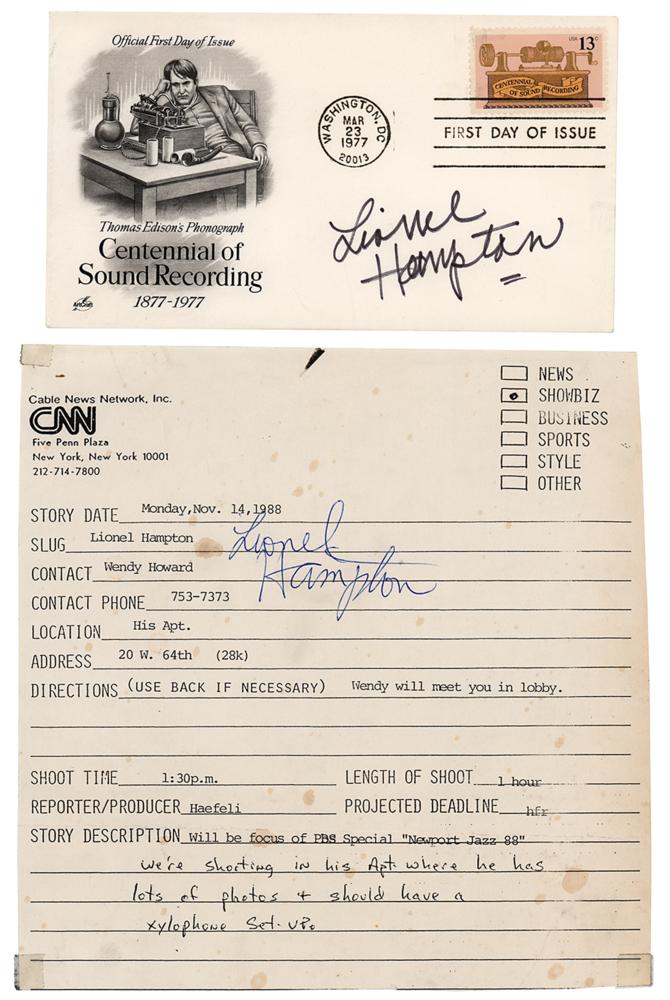 Official First Day of Issue
Thomas Edison's Phonograph
Centennial of
Sound Recording
1877-1977
ArtCraft
WASHINGTON, DC
MAR
23
1977
20013
USA 13c
CENTENNIAL OF SOUND RECORDING
FIRST DAY OF ISSUE
Lionel
Hampton
Cable News Network, Inc.
CNN
Five Penn Plaza
New York, New York 10001
212-714-7800
NEWS
SHOWBIZ
BUSINESS
SPORTS
STYLE
OTHER
STORY DATE Monday, Nov. 14, 1988
SLUG Lionel Hampton
Lionel
Hampton
CONTACT Wendy Howard
CONTACT PHONE 753-7373
LOCATION His Apt.
ADDRESS 20 W. 64th (28k)
DIRECTIONS (USE BACK IF NECESSARY) Wendy will meet you in lobby.
SHOOT TIME 1:30p.m. LENGTH OF SHOOT 1 hour
REPORTER/PRODUCER Haefeli PROJECTED DEADLINE hfr
STORY DESCRIPTION Will be focus of PBS Special "Newport Jazz 88"
we're shooting in his Apt. where he has
lots of photos + should have a
xylophone set-up.